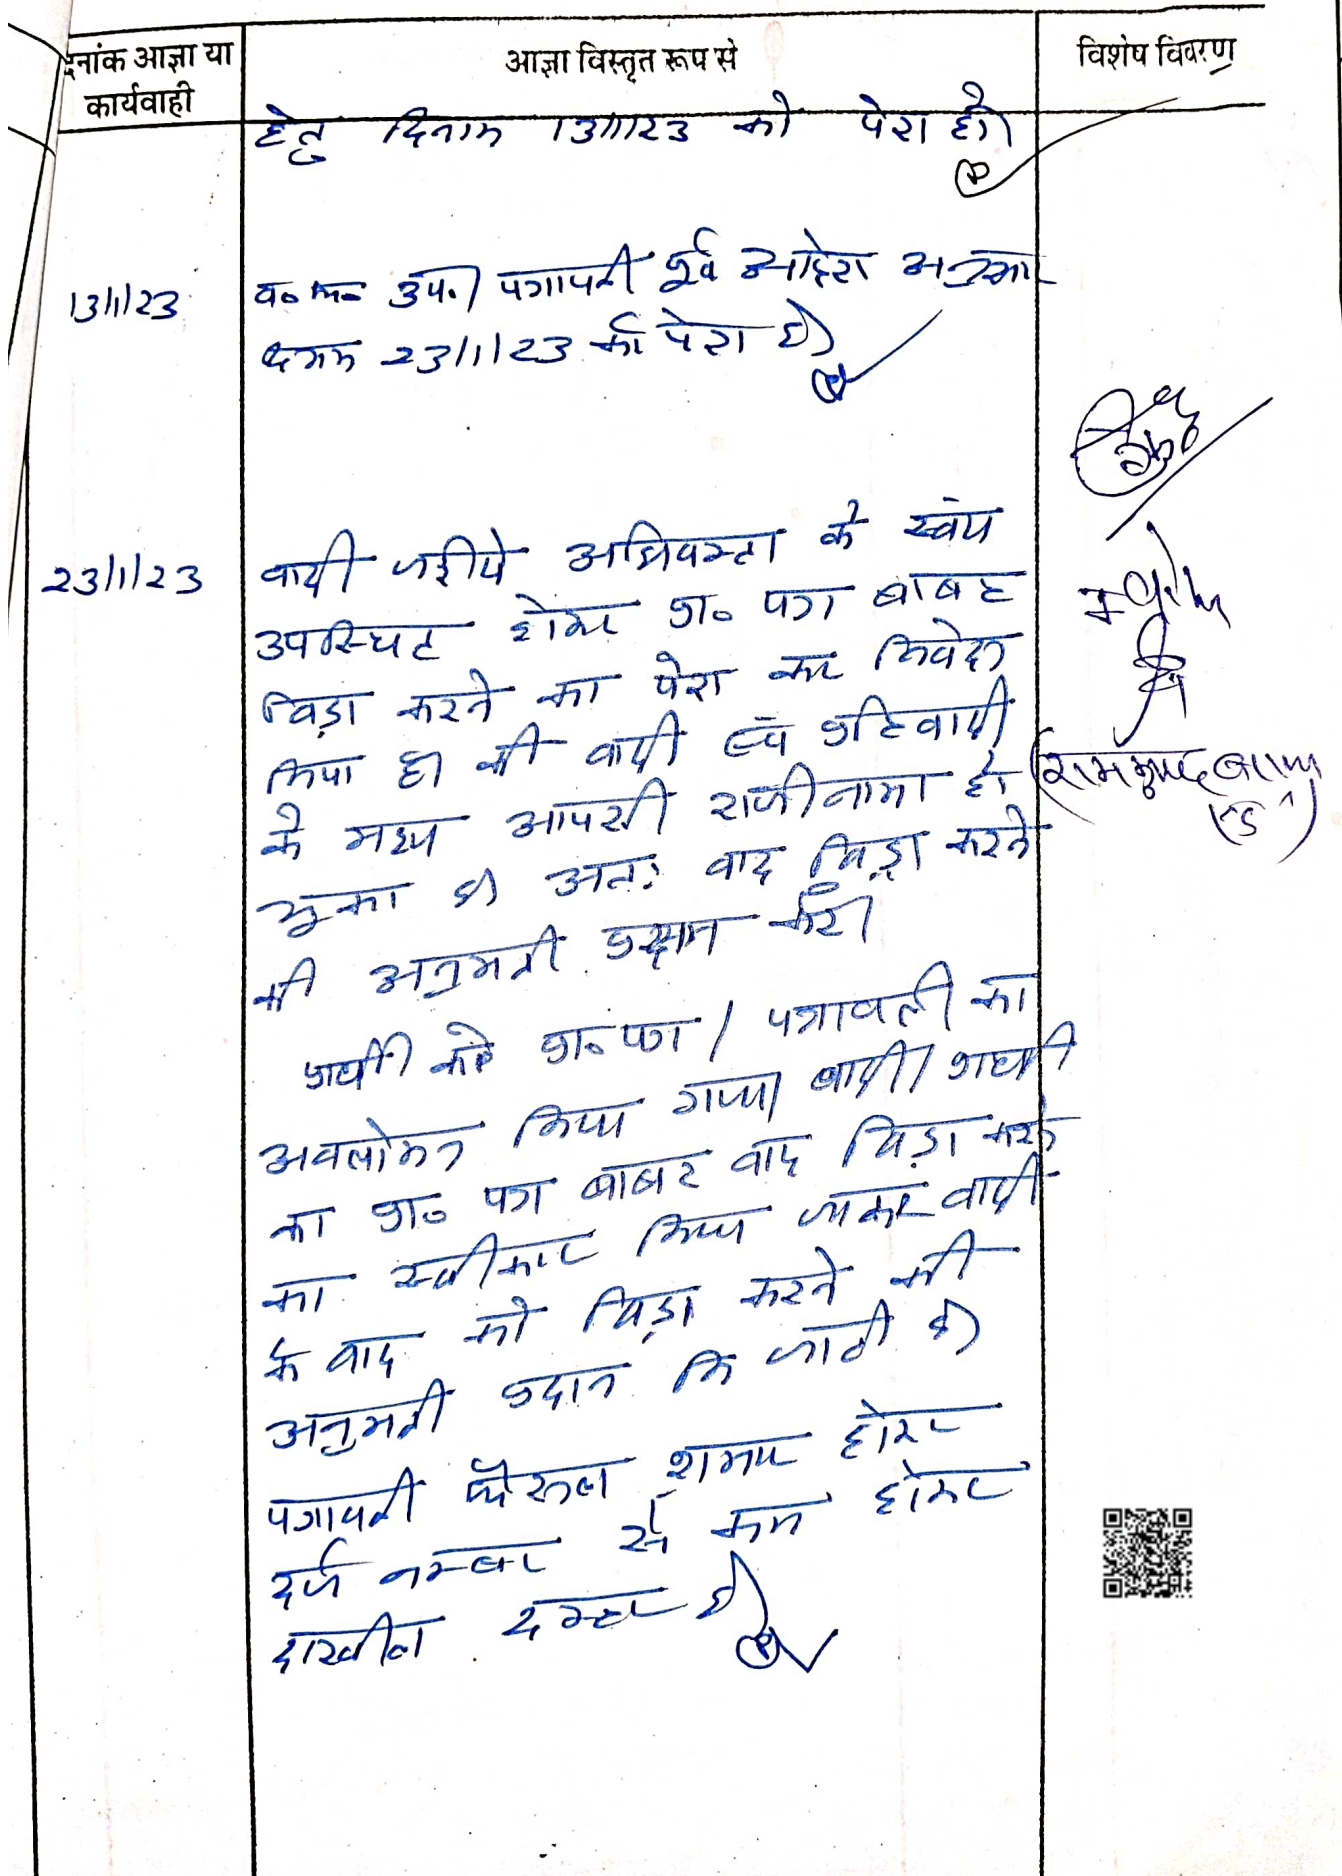 दिनांक आज्ञा या
कार्यवाही
आज्ञा विस्तृत रूप से
विशेष विवरण
हेतु दिनांक 13/1/23 को पेश हो।
13/1/23
व॰ फ॰ उप.। पत्रावली पूर्व आदेश अनुसार
दिनांक 23/1/23 को पेश हो।
23/1/23
वादी जरीये अधिवक्ता के स्वंय
उपस्थित होकर प्रा॰ पत्र बाबत
विड्रा करने का पेश कर निवेदन
किया है। की वादी एवं प्रतिवादी
के मध्य आपसी राजीनामा हो
चुका है। अतः वाद विड्रा करने
की अनुमती प्रदान करें।
प्रार्थी के प्रा॰ पत्र / पत्रावली का
अवलोकन किया गया। वादी/ प्रार्थी
का प्रा॰ पत्र बाबत वाद विड्रा करने
का स्वीकार किया जाकर वादी
के वाद को विड्रा करने की
अनुमती प्रदान कि जाती है।
पत्रावली फैसल शुमार होकर
दर्ज नम्बर से कम होकर
दाखील दफ्तर हो।